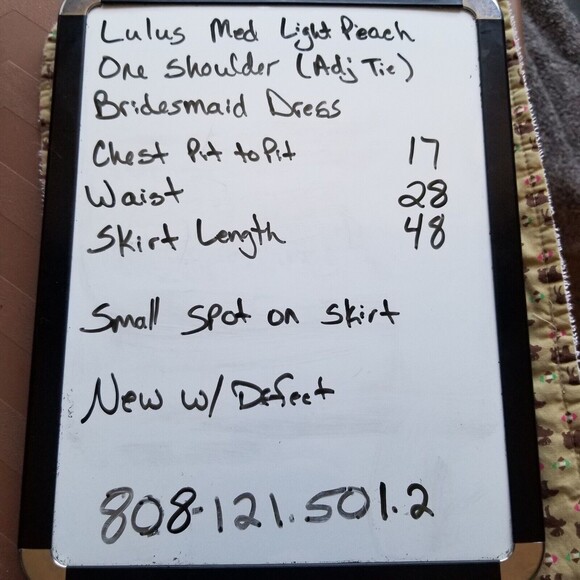 Lulus Med Light Peach
One Shoulder (Adj Tie)
Bridesmaid Dress
Chest Pit to Pit 17
Waist 28
Skirt Length 48
Small Spot on Skirt
New w/ Defect
808-121.501.2